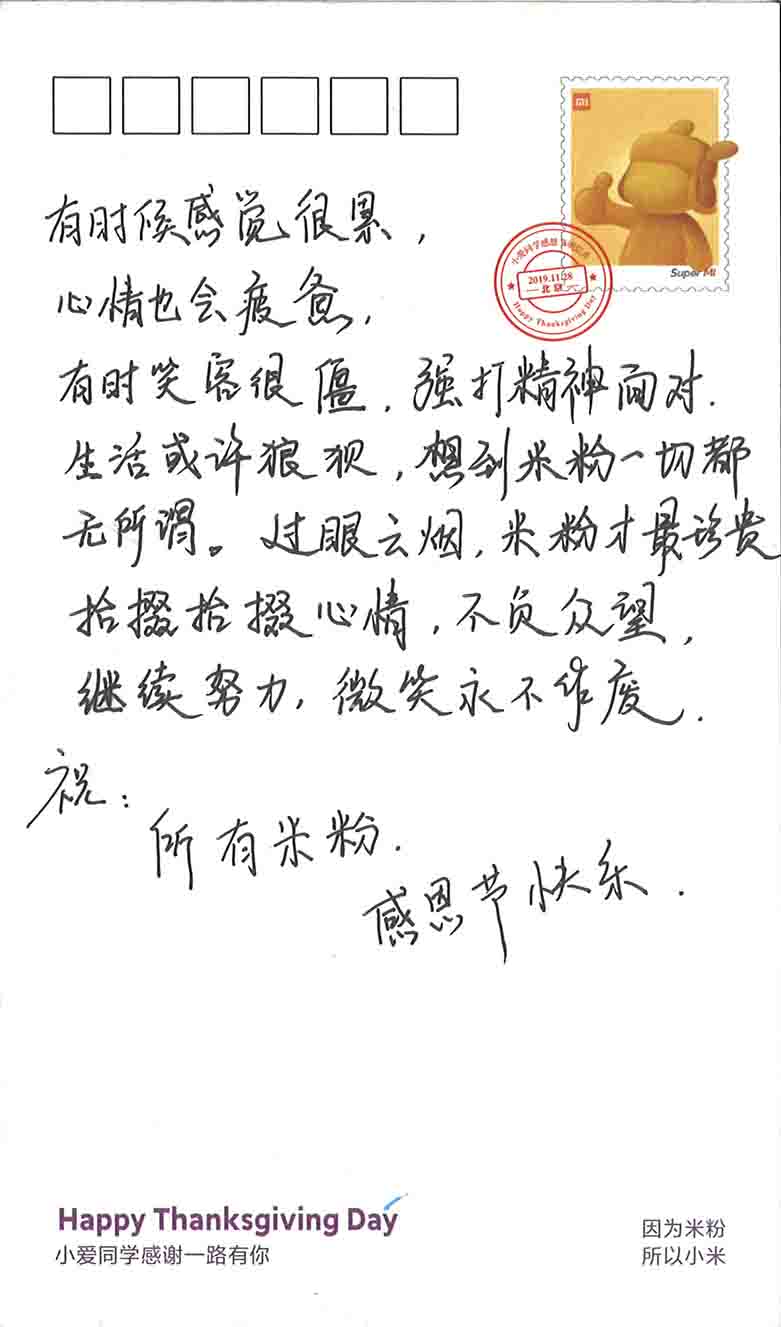 MI
Super MI
小爱同学感恩
2019.11.28
北京
Happy Thanksgiving Day
有时候感觉很累,
心情也会疲惫,
有时笑容很僵,强打精神面对.
生活或许狼狈,想到米粉一切都
无所谓。过眼云烟,米粉才最珍贵
拾掇拾掇心情,不负众望,
继续努力,微笑永不作废.
祝:
所有米粉.
感恩节快乐.
Happy Thanksgiving Day
小爱同学感谢一路有你
因为米粉
所以小米